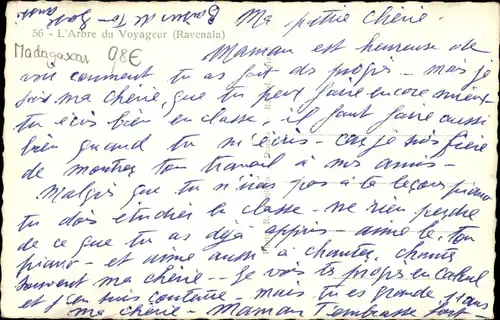 Ma petite chérie.
56 - L'Arbre du Voyageur (Ravenala)
Madagascar 0,8€
Maman est heureuse de
voir comment tu as fait des progrès - mais je
sais ma chérie, que tu peux faire encore mieux
tu écris bien en classe - il faut faire aussi
bien quand tu m'écris - car je suis fière
de montrer ton travail à mes amis -
Malgré que tu n'iras pas à ta leçon piano
tu dois étudier la classe - ne rien perdre
de ce que tu as déjà appris - aime le, ton
piano - et aime aussi à chanter, chante
souvent ma chérie - Je vois tes progrès en calcul
et j'en suis contente - mais tu es grande 11 ans
ma chérie - Maman t'embrasse fort